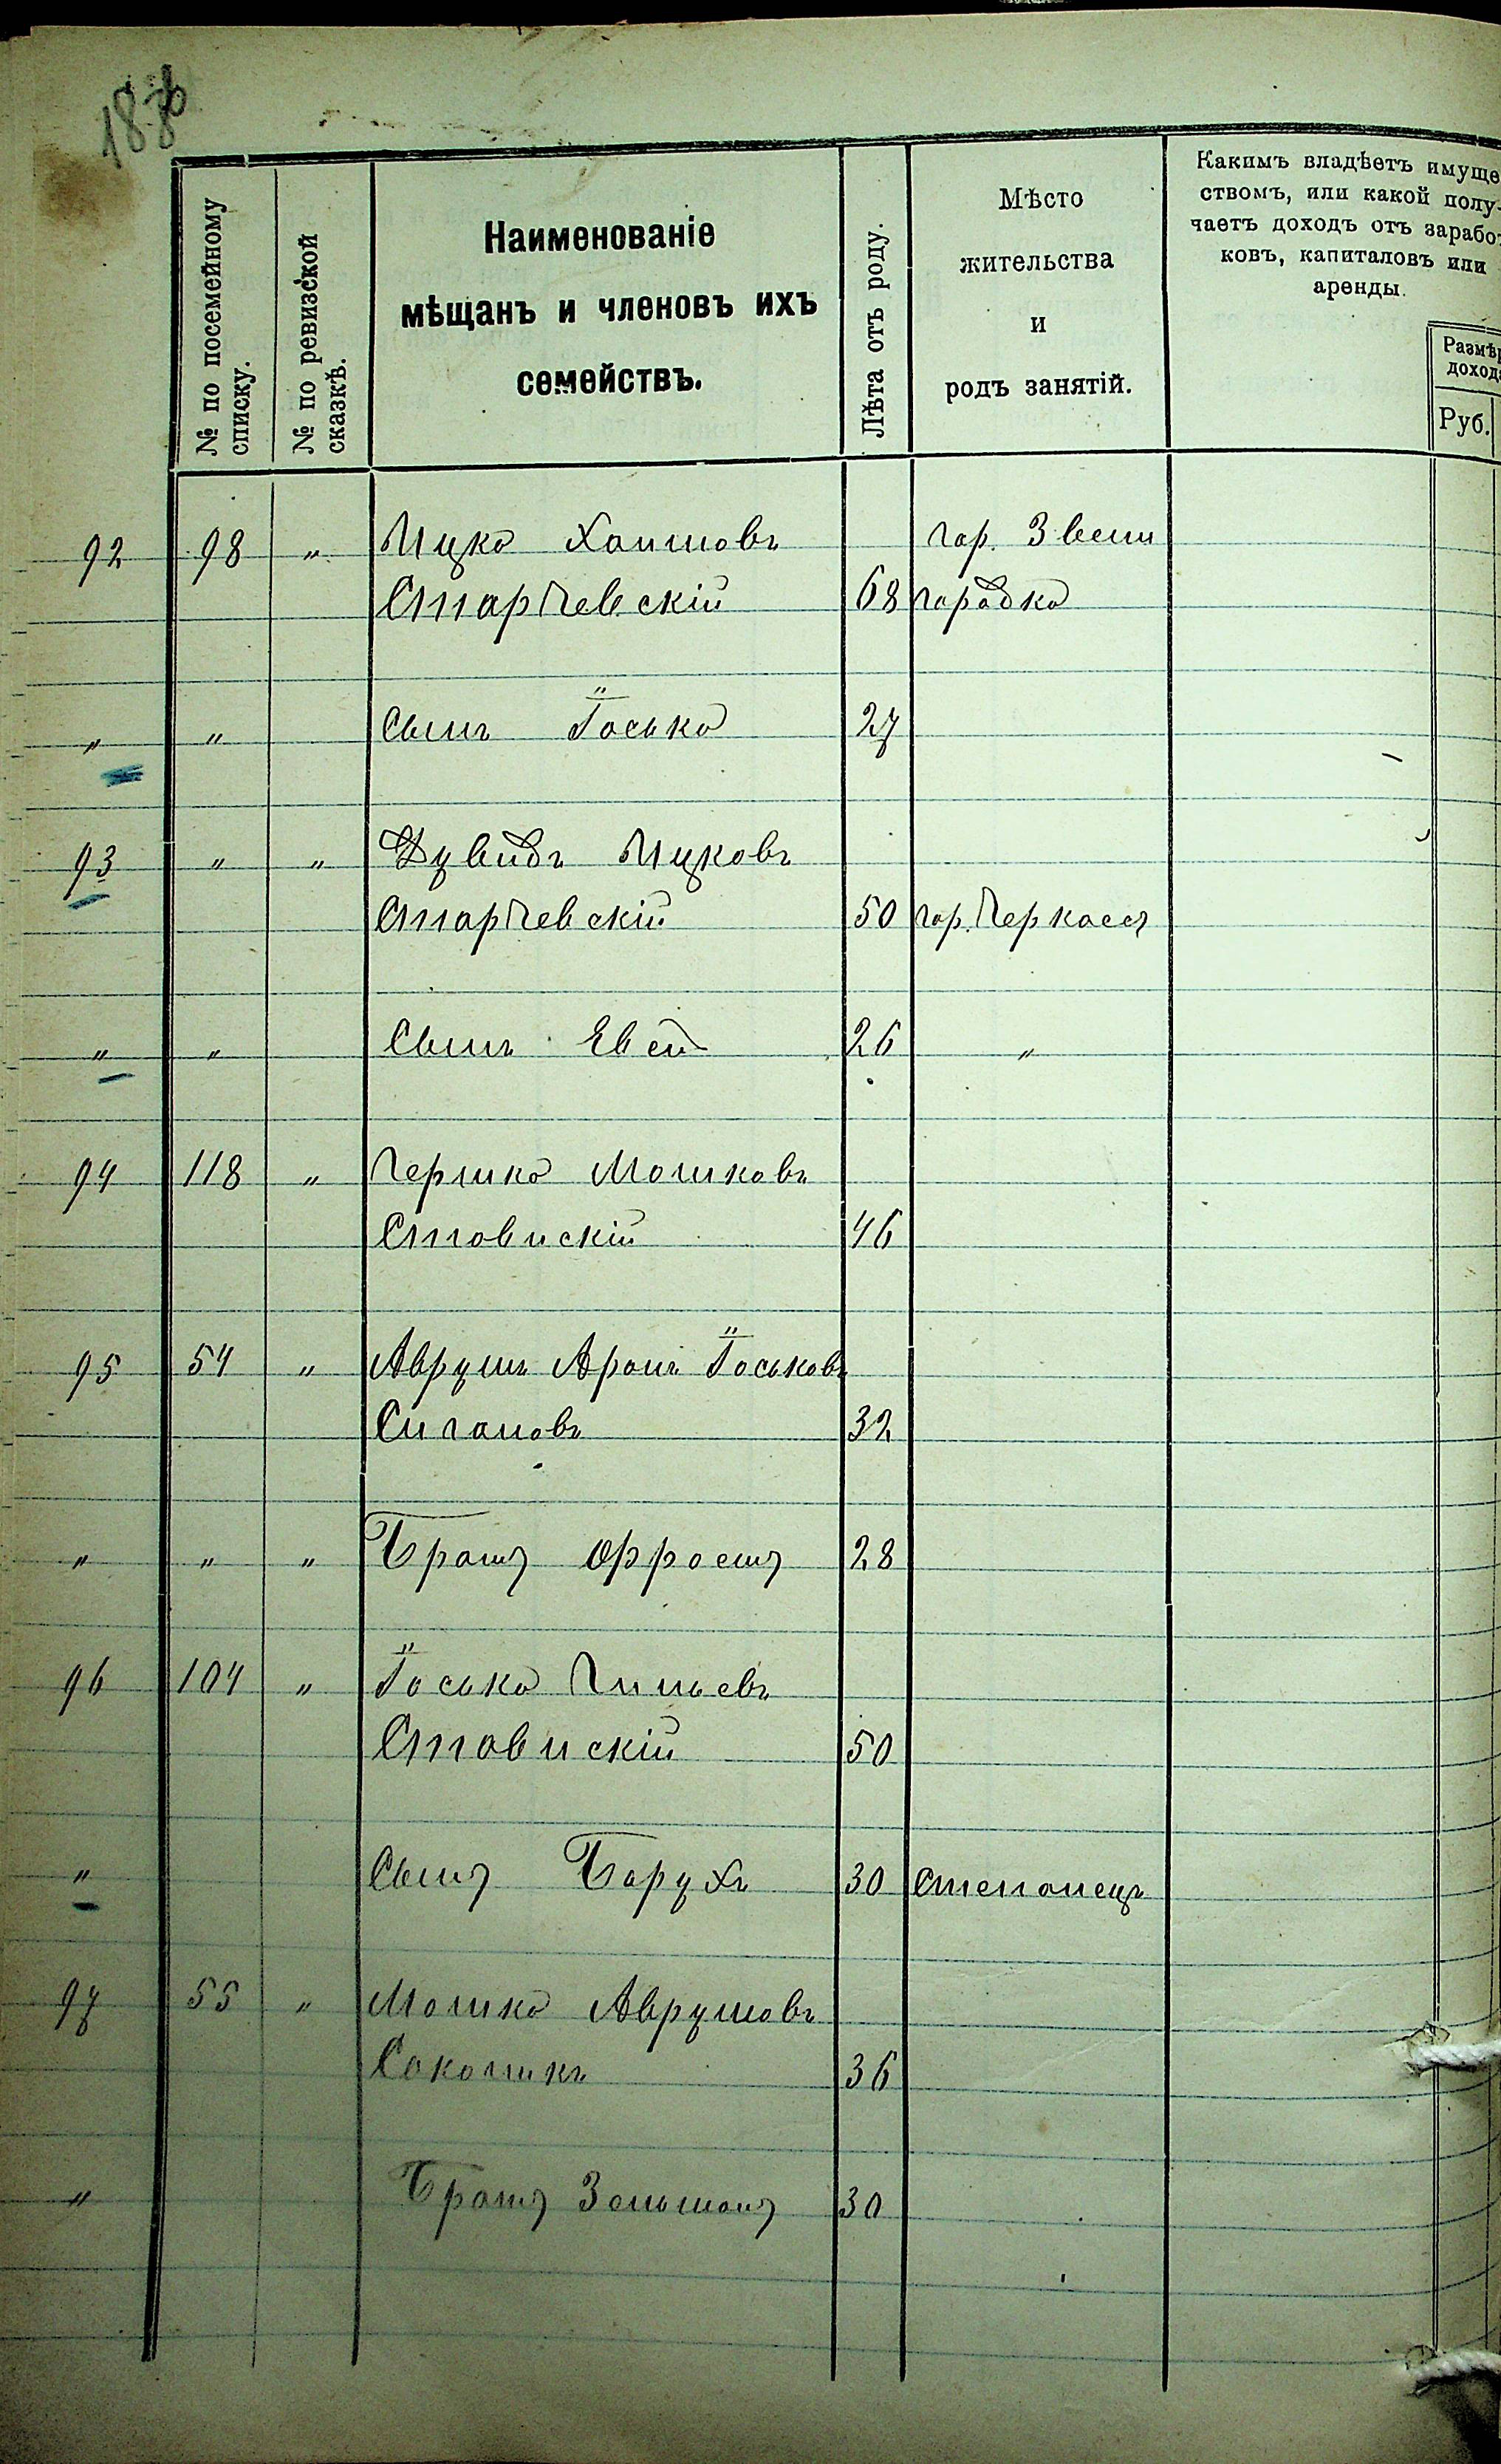 № по посемейному
списку.
№ по ревизской
сказкѣ.
Наименованіе
мѣщанъ и членовъ ихъ
семействъ.
Лѣта отъ роду.
Мѣсто
жительства
и
родъ занятій.
Какимъ владѣетъ имуще
ствомъ, или какой полу-
чаетъ доходъ отъ заработ
ковъ, капиталовъ или
аренды.
Размѣр
дохода
Руб.
92 98 " Ицко Хаимовъ гор. Звени
Старчевскій 68 городка
" " Сынъ Іосько 27
93 " " Дувидъ Ицковъ
Старчевскій 50 гор. Черкассъ
" " Сынъ Евсей 26 "
94 118 " Гершко Мошковъ
Ставискій 46
95 54 " Аврумъ Аронъ Іоськовъ
Сигаловъ 32
" " " Братъ Эфроемъ 28
96 104 " Іосько
Ставискій 50
" Сынъ Барухъ 30 Степанецъ
97 55 " Мошко Аврумовъ
Соколикъ 36
" Братъ Зельманъ 30